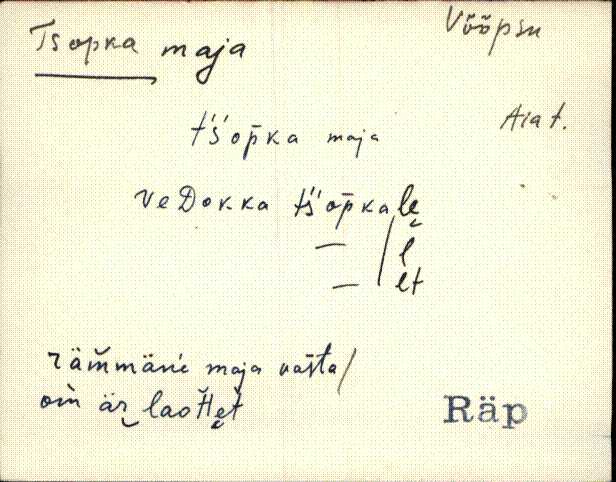 Tsopka maja
Vööpsu
t's'op̄ka maja
Aiat.
veDok.ka t's'op̄kalę
— l
— lt
räm̆mäńe maja vašta/
om̀ är̬ laott̆et̆
Räp